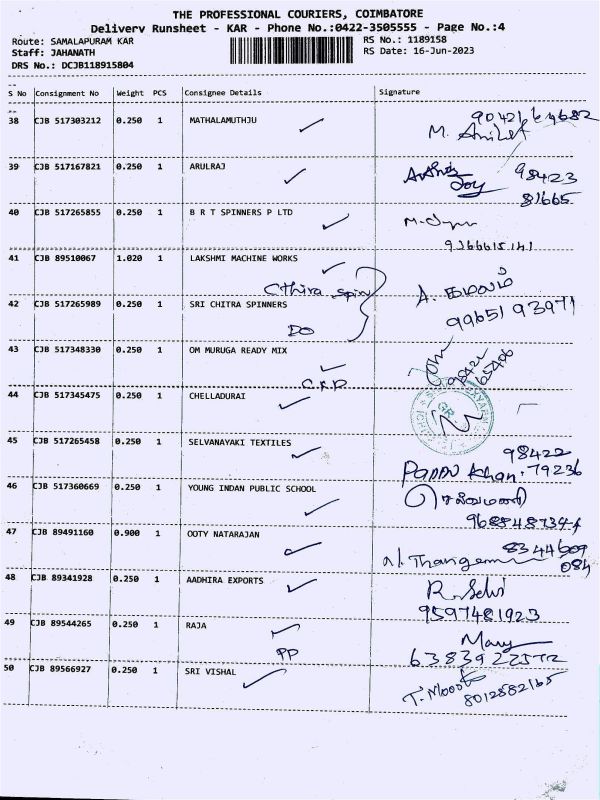 THE PROFESSIONAL COURIERS, COIMBATORE
Delivery Runsheet - KAR - Phone No.:0422-3505555 - Page No.:4
Route: SAMALAPURAM KAR
RS No.: 1189158
Staff: JAHANATH
RS Date: 16-Jun-2023
DRS No.: DCJB118915804
S No Consignment No Weight PCS Consignee Details Signature
38 CJB 517303212 0.250 1 MATHALAMUTHJU
39 CJB 517167821 0.250 1 ARULRAJ
98423
81665
40 CJB 517265855 0.250 1 B R T SPINNERS P LTD
9366615141
41 CJB 89510067 1.020 1 LAKSHMI MACHINE WORKS
Cthira Spin
A. கமலம்
42 CJB 517265989 0.250 1 SRI CHITRA SPINNERS
99651 93971
DO
43 CJB 517348330 0.250 1 OM MURUGA READY MIX
44 CJB 517345475 0.250 1 CHELLADURAI
45 CJB 517265458 0.250 1 SELVANAYAKI TEXTILES
98422
Pappu Khan. 79236
46 CJB 517360669 0.250 1 YOUNG INDAN PUBLIC SCHOOL
செல்வமணி
47 CJB 89491160 0.900 1 OOTY NATARAJAN
8344609
084
48 CJB 89341928 0.250 1 AADHIRA EXPORTS
R. Selvi
9597481923
49 CJB 89544265 0.250 1 RAJA
Mary
PP
50 CJB 89566927 0.250 1 SRI VISHAL
8012882165